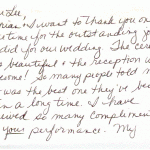 I want to thank you on
time for the outstanding jo
did for our wedding. The cere
s beautiful & the reception w
esome! So many people told m
was the best one they've be
in a long time. I have
eived so many complemen
your performance. My